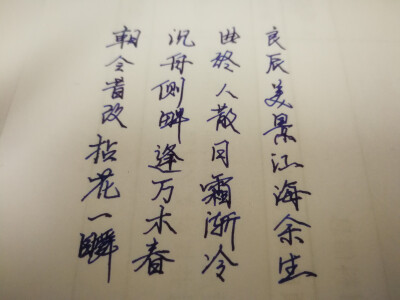 良辰美景江海余生
曲终人散日霜渐冷
沉舟侧畔逢万木春
朝令昔改拈花一瞬